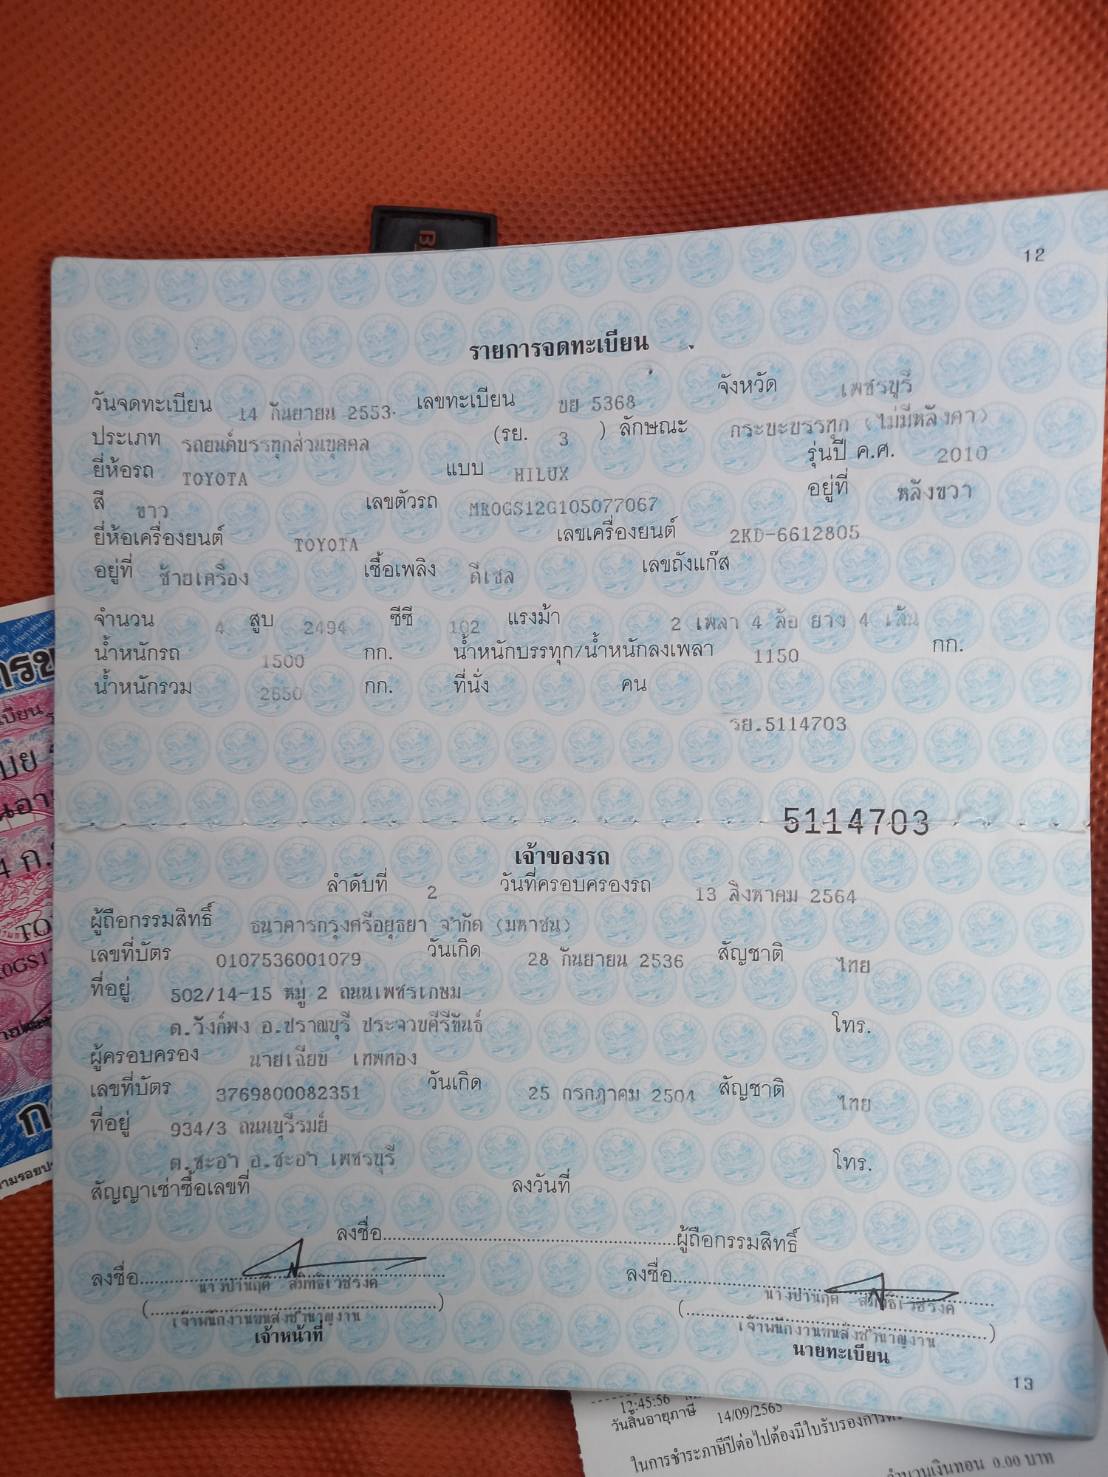 12
รายการจดทะเบียน
วันจดทะเบียน 14 กันยายน 2553 เลขทะเบียน ขย 5368 จังหวัด เพชรบุรี
ประเภท รถยนต์บรรทุกส่วนบุคคล (รย. 3 ) ลักษณะ กระบะบรรทุก (ไม่มีหลังคา)
ยี่ห้อรถ TOYOTA แบบ HILUX รุ่นปี ค.ศ. 2010
สี ขาว เลขตัวรถ MR0GS12G105077067 อยู่ที่ หลังขวา
ยี่ห้อเครื่องยนต์ TOYOTA เลขเครื่องยนต์ 2KD-6612805
อยู่ที่ ซ้ายเครื่อง เชื้อเพลิง ดีเซล เลขถังแก๊ส
จำนวน 4 สูบ 2494 ซีซี 102 แรงม้า 2 เพลา 4 ล้อ ยาง 4 เส้น
น้ำหนักรถ 1500 กก. น้ำหนักบรรทุก/น้ำหนักลงเพลา 1150 กก.
น้ำหนักรวม 2650 กก. ที่นั่ง คน
รย.5114703
5114703
เจ้าของรถ
ลำดับที่ 2 วันที่ครอบครองรถ 13 สิงหาคม 2564
ผู้ถือกรรมสิทธิ์ ธนาคารกรุงศรีอยุธยา จำกัด (มหาชน)
เลขที่บัตร 0107536001079 วันเกิด 28 กันยายน 2536 สัญชาติ ไทย
ที่อยู่ 502/14-15 หมู่ 2 ถนนเพชรเกษม
ต.วังก์พง อ.ปราณบุรี ประจวบคีรีขันธ์ โทร.
ผู้ครอบครอง นายเฉียบ เทพทอง
เลขที่บัตร 3769800082351 วันเกิด 25 กรกฎาคม 2504 สัญชาติ ไทย
ที่อยู่ 934/3 ถนนบุรีรมย์
ต.ชะอำ อ.ชะอำ เพชรบุรี โทร.
สัญญาเช่าซื้อเลขที่ ลงวันที่
ลงชื่อ ผู้ถือกรรมสิทธิ์
ลงชื่อ ลงชื่อ
เจ้าพนักงานขนส่งชำนาญงาน เจ้าพนักงานขนส่งชำนาญงาน
เจ้าหน้าที่ นายทะเบียน
13
12:45:56
วันสิ้นอายุภาษี 14/09/2565
ในการชำระภาษีปีต่อไปต้องมีใบรับรองการ
จำนวนเงินทอน 0.00 บาท